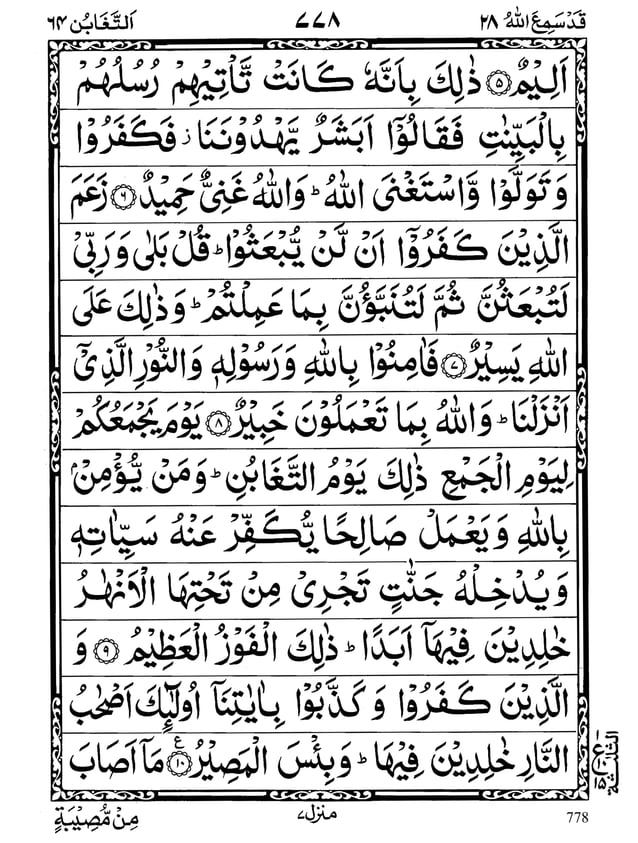 قَدْ سَمِعَ اللّٰهُ ٢٨ ٧٧٨ اَلتَّغَابُن ٦٤
اَلِيْمٌ ۝٥ ذٰلِكَ بِاَنَّهٗ كَانَتْ تَّاْتِيْهِمْ رُسُلُهُمْ
بِالْبَيِّنٰتِ فَقَالُوْۤا اَبَشَرٌ يَّهْدُوْنَنَا ؗ فَكَفَرُوْا
وَ تَوَلَّوْا وَّاسْتَغْنَى اللّٰهُ ؕ وَاللّٰهُ غَنِيٌّ حَمِيْدٌ ۝٦ زَعَمَ
الَّذِيْنَ كَفَرُوْۤا اَنْ لَّنْ يُّبْعَثُوْا ؕ قُلْ بَلٰى وَ رَبِّيْ
لَتُبْعَثُنَّ ثُمَّ لَتُنَبَّؤُنَّ بِمَا عَمِلْتُمْ ؕ وَذٰلِكَ عَلَى
اللّٰهِ يَسِيْرٌ ۝٧ فَاٰمِنُوْا بِاللّٰهِ وَ رَسُوْلِهٖ وَالنُّوْرِ الَّذِيْۤ
اَنْزَلْنَا ؕ وَاللّٰهُ بِمَا تَعْمَلُوْنَ خَبِيْرٌ ۝٨ يَوْمَ يَجْمَعُكُمْ
لِيَوْمِ الْجَمْعِ ذٰلِكَ يَوْمُ التَّغَابُنِ ؕ وَمَنْ يُّؤْمِنْۢ
بِاللّٰهِ وَ يَعْمَلْ صَالِحًا يُّكَفِّرْ عَنْهُ سَيِّاٰتِهٖ
وَ يُدْخِلْهُ جَنّٰتٍ تَجْرِيْ مِنْ تَحْتِهَا الْاَنْهٰرُ
خٰلِدِيْنَ فِيْهَاۤ اَبَدًا ؕ ذٰلِكَ الْفَوْزُ الْعَظِيْمُ ۝٩ وَ
الَّذِيْنَ كَفَرُوْا وَ كَذَّبُوْا بِاٰيٰتِنَاۤ اُولٰٓئِكَ اَصْحٰبُ
النَّارِ خٰلِدِيْنَ فِيْهَا ؕ وَ بِئْسَ الْمَصِيْرُ ۝١٠ ع مَاۤ اَصَابَ
ع ١٠ ١٥ الثلثة
مِنْ مُّصِيْبَةٍ منزل٧ 778